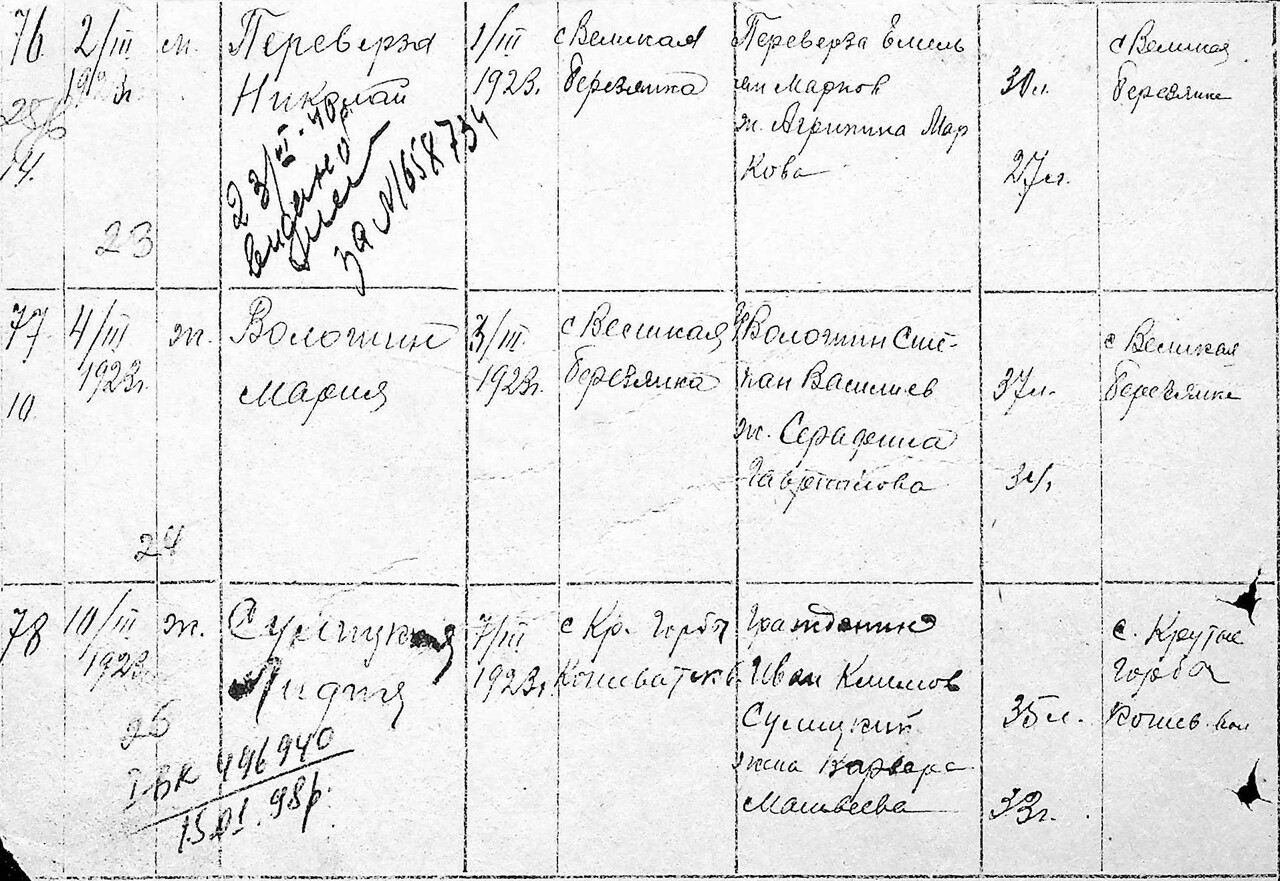 76
2/III
1923г.
25/6
14.
23
м.
Переверза
Николай
23/III-40р.
видано
за №1658734
1/III
1923.
с Великая
Березянка
Переверза Емель
ян Марков
ж. Агрипина Мар
кова
30л.
27л.
с Великая
Березянке
77
10.
4/III
1923г.
24
ж.
Воложин
Мария
3/III
1923г.
с Великая
Березянка
Воложин Сте-
пан Василиев
ж. Серафима
37л.
с Великая
Березянке
78
10/III
1923.
26
ж.
Сулицкая
Лидия
I-ВК 496940
15.01.98р.
7/III
1923г.
с Кр. Горбы
Гражданин
Иван Климов
Сулицкий
жена Варвара
Матвеева
35л.
33г.
с. Крутые
Горбы